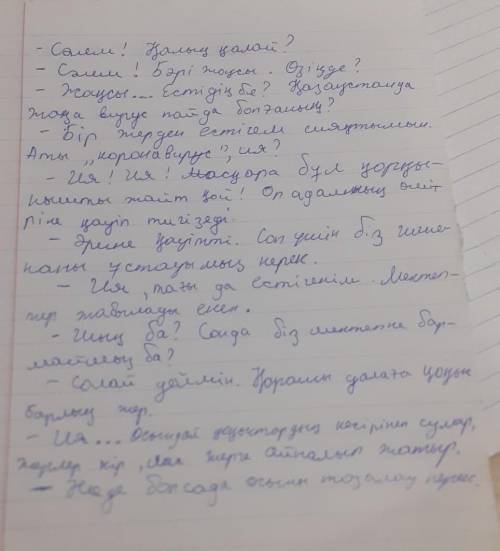 - Сәлем! Қалың қалай?
- Сәлем! Бәрі жақсы. Өзіңде?
- Жақсы... Естідің бе? Қазақстанда
жаңа вирус пайда болғанын?
- Бір жерден естігем сияқтымын.
Аты "коронавирус", ия?
- Ия! Ия! Масқара бұл қорқы-
нышты жайт қой! Ол адамның өмі-
ріне қауіп тигізеді.
- Әрине қауіпті. Сол үшін біз гигие-
наны ұстауымыз керек.
- Ия, тағы да естігенім. Мектеп-
тер жабылады екен.
- Шын ба? Сонда біз мектепке бар-
маймыз ба?
- Солай деймін. Қарашы далаға қоқын
барлық жер.
- Ия... Осындай қоқыстардың кесірінен сулар,
жерлер кір, лас жерге айналып жатыр.
- Не де болсада осыны тазалау керек.